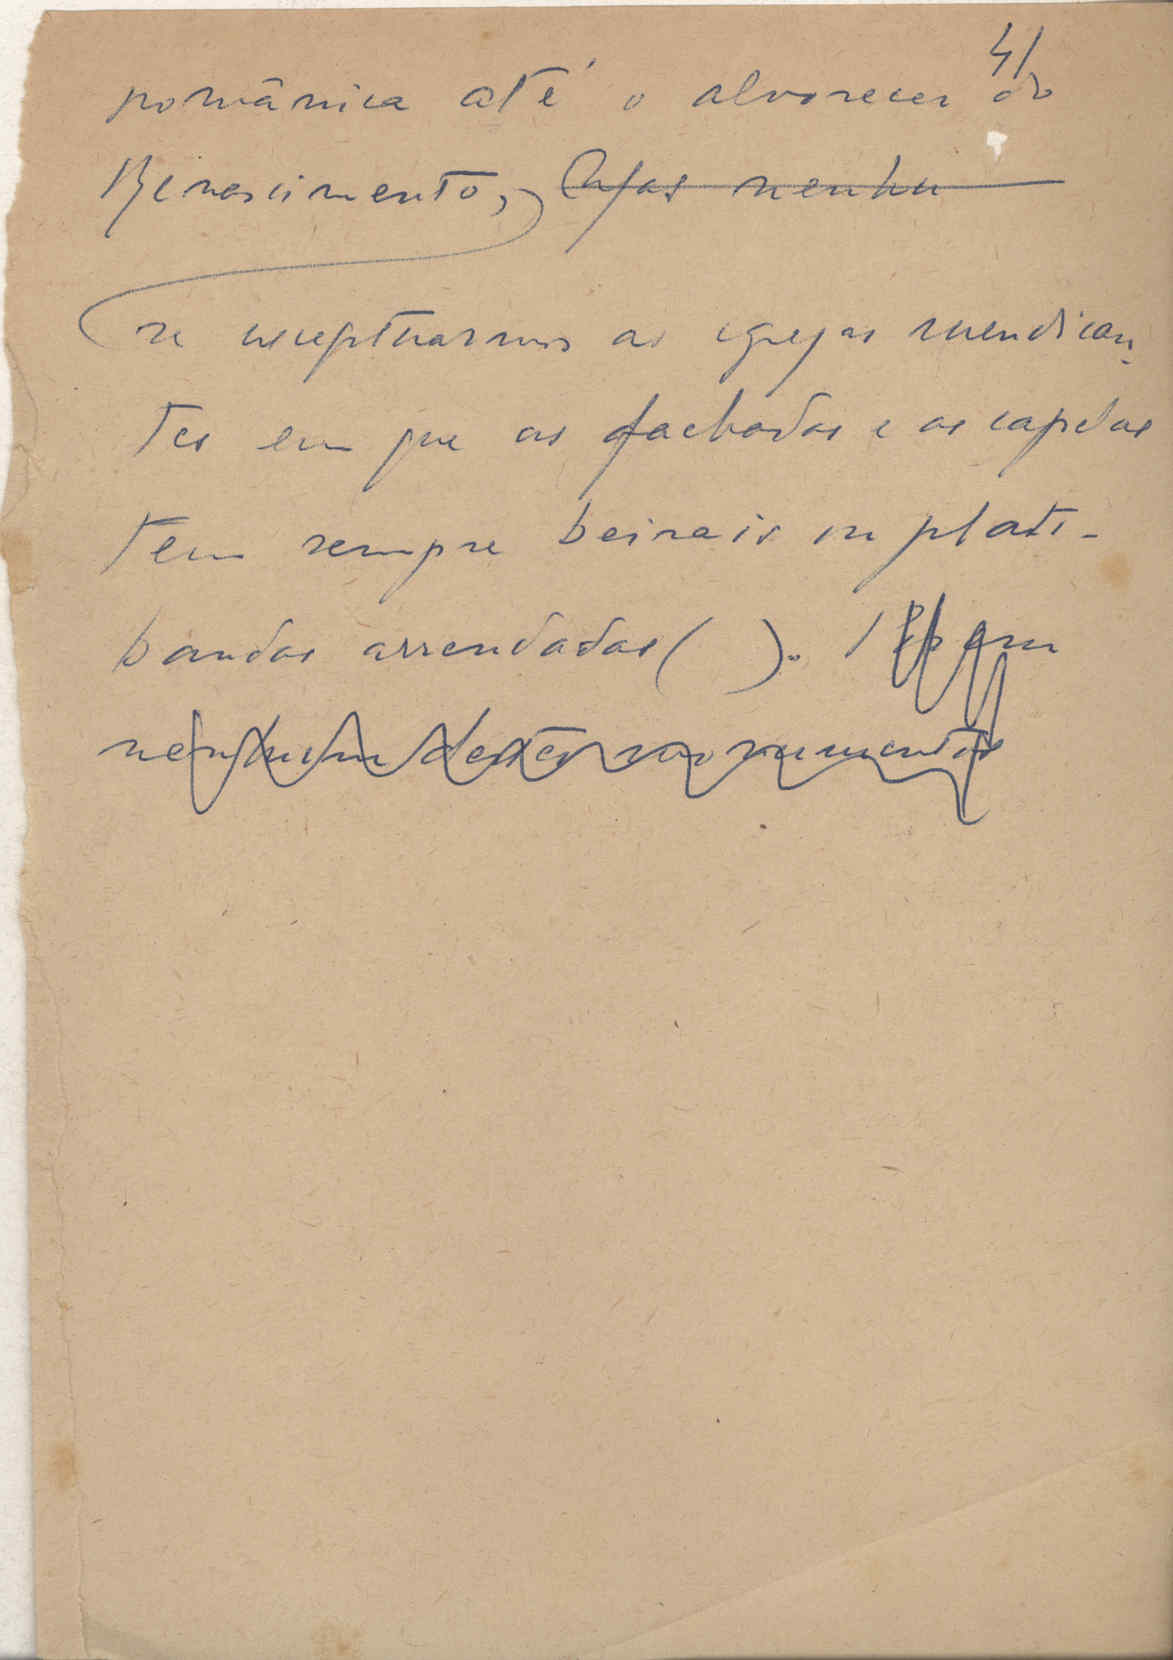 41
românica até o alvorecer do
Renascimento, Mas nenhu
se exceptuarmos as igrejas mendican-
tes em que as fachadas e as capelas
tem sempre beirais ou plati-
bandas arrendadas ( ). em
nenhum destes monumentos